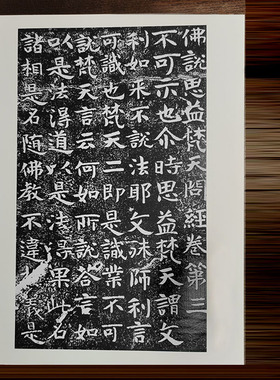 佛說思益梵天問經卷第三
不可示也尒時思益梵天謂文
利如来不說法耶文殊師利言
可識也梵天二即是識業不可
說梵天言云何如所說答言如
以是法得道以是法得果此名
諸相是名隨佛教不違義是